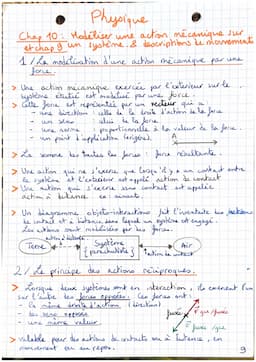 Physique
Chap 10 : Modéliser une action mécanique sur
et chap 9 un système & descriptions de mouvements
1/ La modélisation d'une action mécanique par une
force.
> Une action mécanique exercée par l'extérieur sur le
système étudié est modélisé par une force.
> Cette force est représentée par un vecteur qui a :
- une direction : celle de la droite d'action de la force
- un sens : de la force
- une norme : proportionnelle à la valeur de la force
- un point d'application (origine). A
> La somme des toutes les forces : force résultante
> Une action qui ne s'exerce que lorsqu'il y a un contact entre
le système et l'extérieur est appelé action de contact
> Une action qui s'exerce sans contact est appelée
action à distance. ex : aimant.
> Un diagramme objets-interactions fait l'inventaire des actions
de contact et à distance dans lequel un système est engagé.
Les actions sont modélisées par des forces.
action à distance
Terre Système Air
{parachutiste} action de contact
2/ Le principe des actions réciproques.
> Lorsque deux systèmes sont en interaction, ils exercent l'un
sur l'autre des forces opposées. Ces forces ont :
- la même droite d'action (direction)
- des sens opposés
- une même valeur.
> Valable pour des actions de contacts ou à distance, en
mouvement ou au repos.
9